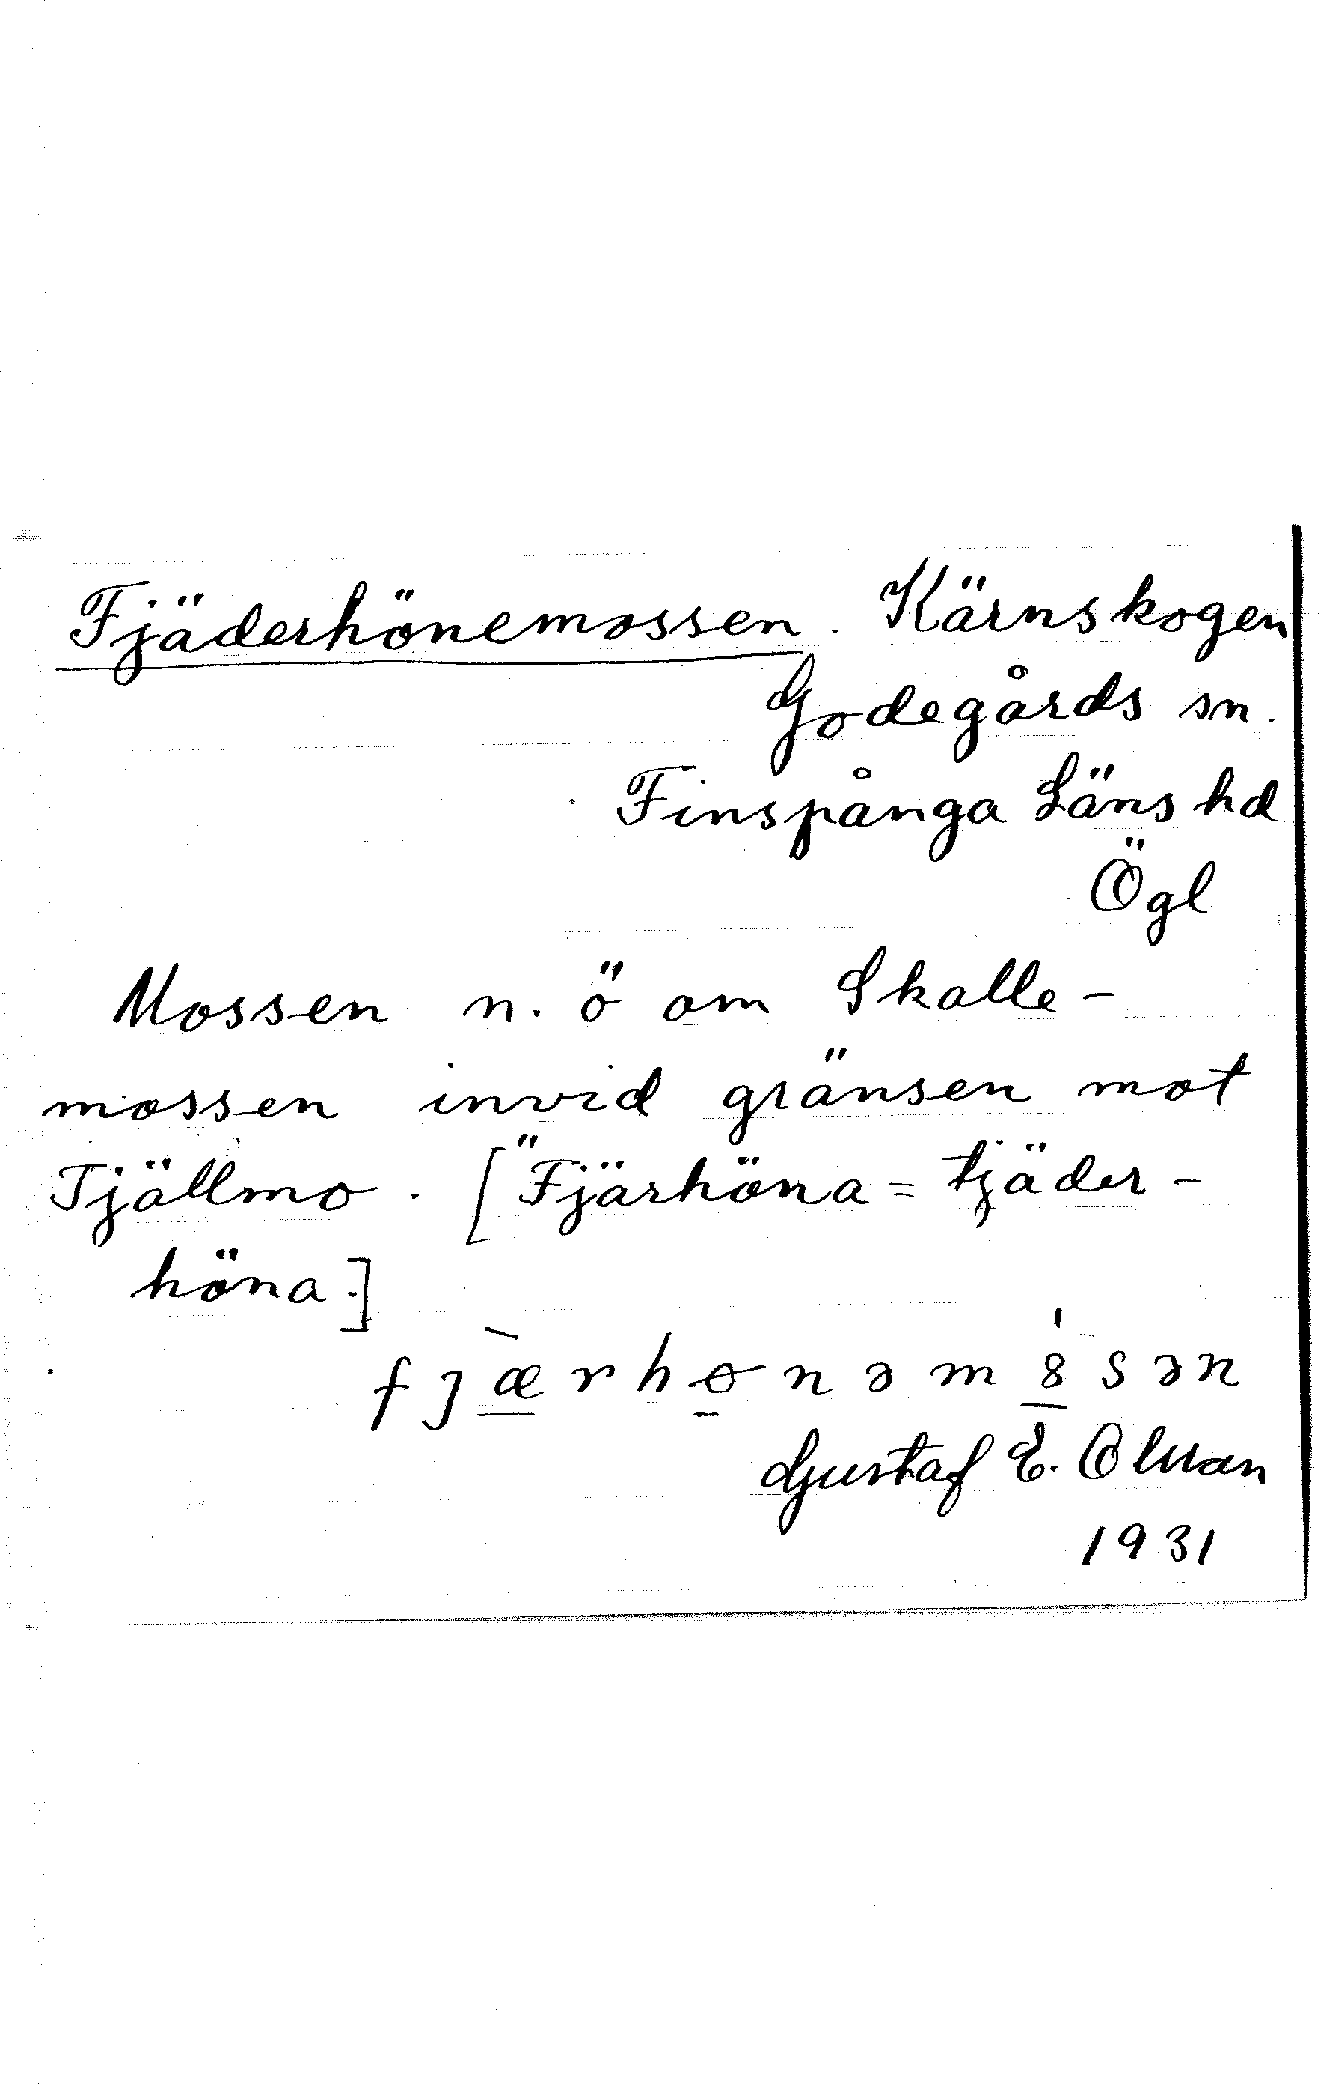 Fjäderhönemossen. Kärnskogen
Godegårds sn.
Finspånga Läns hd
Ögl
Mossen n. ö om Skalle-
mossen invid gränsen mot
Tjällmo. ["Fjärhöna = tjäder-
höna.]
fjæ̀rhɵnəm8́sən
Gustaf E. Olsson
1931